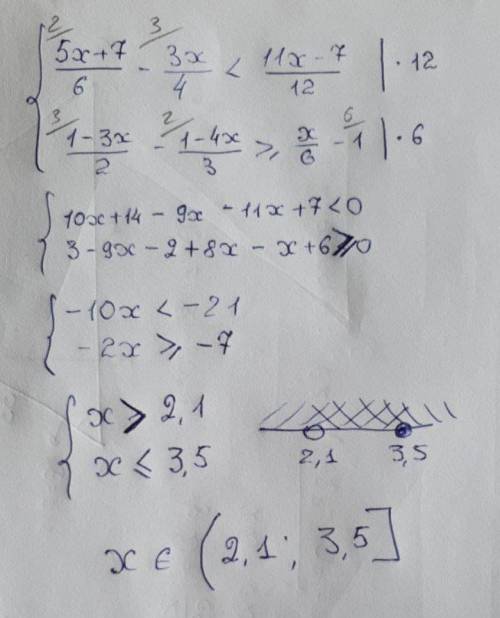 2/ 3/
{ (5x+7)/6 - 3x/4 < (11x-7)/12 | · 12
3/ 2/ 6/
(1-3x)/2 - (1-4x)/3 ⩾ x/6 - 1 | · 6
{ 10x+14 - 9x - 11x + 7 < 0
3 - 9x - 2 + 8x - x + 6 ⩾ 0
{ -10x < -21
-2x ⩾ -7
{ x > 2,1
x ≤ 3,5
2,1 3,5
x ∈ (2,1; 3,5]